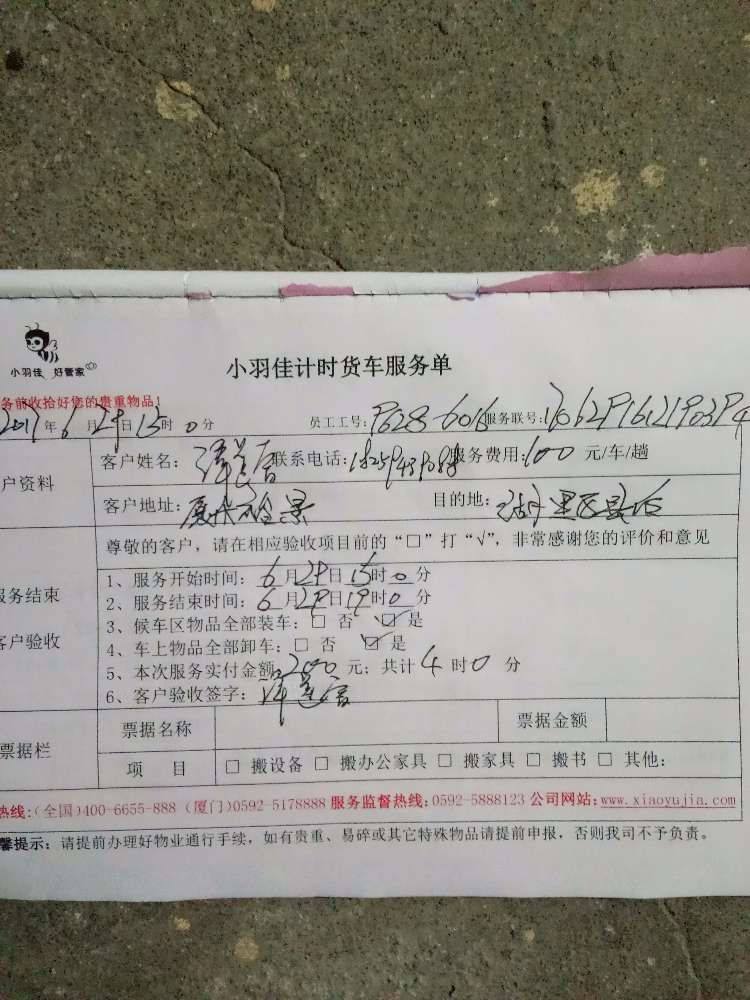 小羽佳 好管家
小羽佳计时货车服务单
务前收拾好您的贵重物品!
2017年6月29日15时0分 员工工号: 服务联号:
户资料
客户姓名: 联系电话: 服务费用:100元/车/趟
客户地址: 目的地:
尊敬的客户,请在相应验收项目前的“□”打“√”,非常感谢您的评价和意见
服务结束
客户验收
1、服务开始时间:6月29日15时0分
2、服务结束时间:6月29日19时0分
3、候车区物品全部装车:□ 否 ☑ 是
4、车上物品全部卸车:□ 否 ☑ 是
5、本次服务实付金额200元;共计4时0分
6、客户验收签字:
票据栏
票据名称 票据金额
项 目 □ 搬设备 □ 搬办公家具 □ 搬家具 □ 搬书 □ 其他:
热线:(全国)400-6655-888 (厦门)0592-5178888 服务监督热线:0592-5888123 公司网站:www.xiaoyujia.com
馨提示:请提前办理好物业通行手续,如有贵重、易碎或其它特殊物品请提前申报,否则我司不予负责。